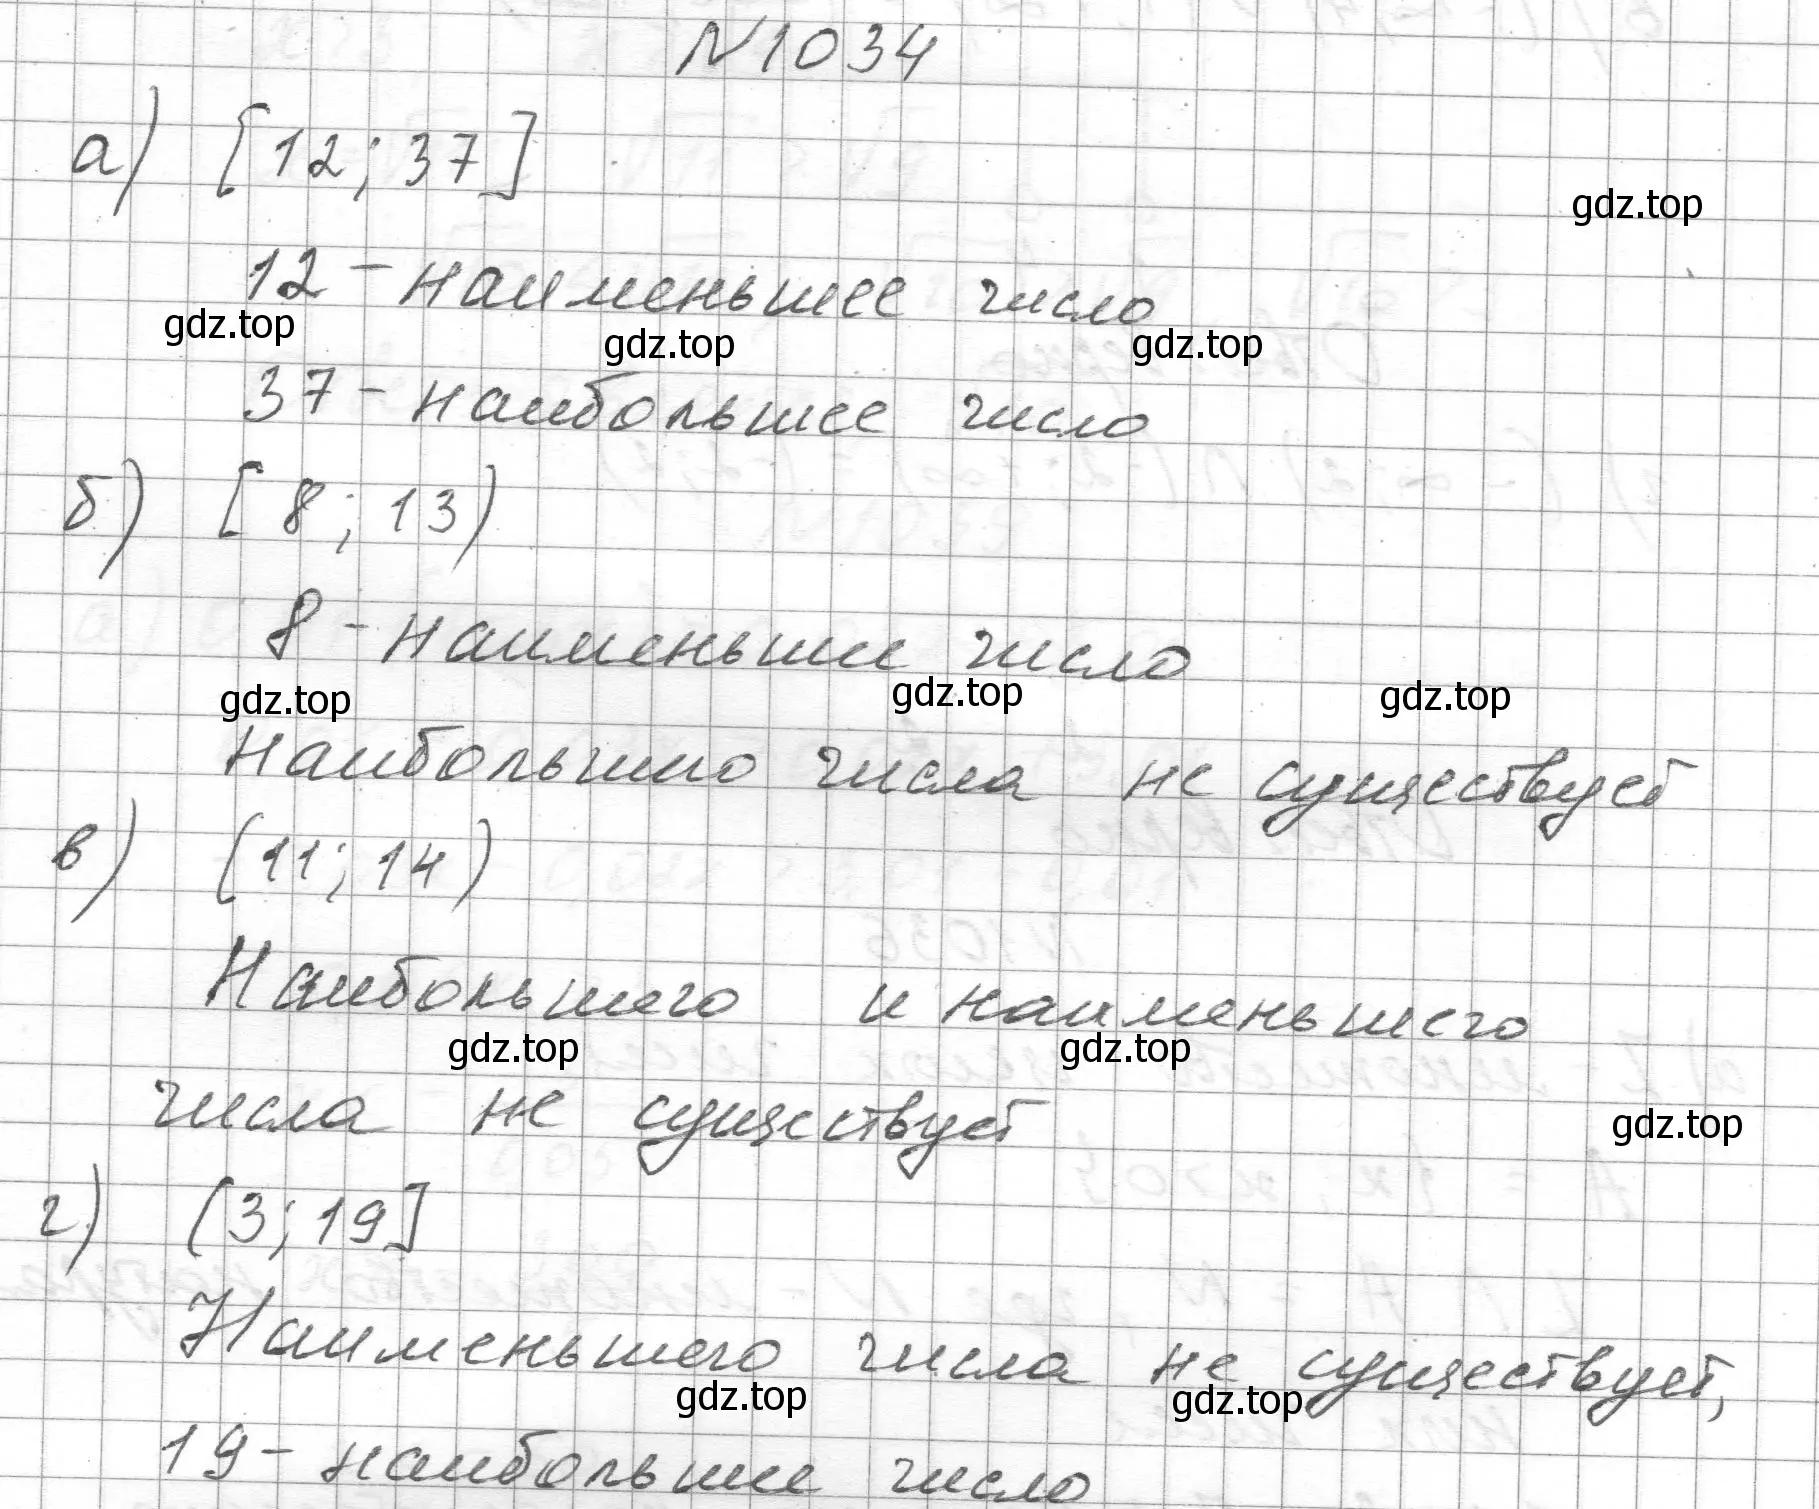 N1034
а) [12; 37]
gdz.top
12 - наименьшее число
gdz.top gdz.top gdz.top
37 - наибольшее число
б) [8; 13)
8 - наименьшее число
gdz.top gdz.top gdz.top
Наибольшего числа не существует
в) (11; 14)
Наибольшего и наименьшего
gdz.top gdz.top
числа не существует
gdz.top
г) (3; 19]
Наименьшего числа не существует,
gdz.top gdz.top
19 - наибольшее число